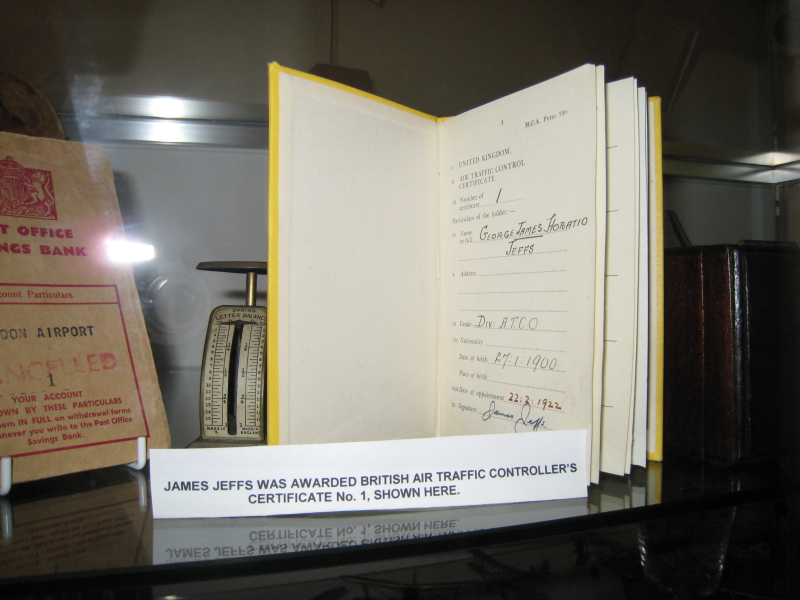 ST OFFICE
INGS BANK
count Particulars
DON AIRPORT
ANCELLED
1
YOUR ACCOUNT
OWN BY THESE PARTICULARS
hem IN FULL on withdrawal forms
enever you write to the Post Office
Savings Bank.
LETTER BALANCE
MADE IN
ENGLAND
1
M.C.A. Form
UNITED KINGDOM.
AIR TRAFFIC CONTROL
CERTIFICATE
Number of
certificate 1
Particulars of the holder:—
Name
in full GEORGE JAMES HORATIO
JEFFS
Address
Grade Div. A.T.C.O
Nationality
Date of birth 27.1.1900
Place of birth
Date of appointment 22.2.1922
Signature James Jeffs.
JAMES JEFFS WAS AWARDED BRITISH AIR TRAFFIC CONTROLLER'S
CERTIFICATE No. 1, SHOWN HERE.